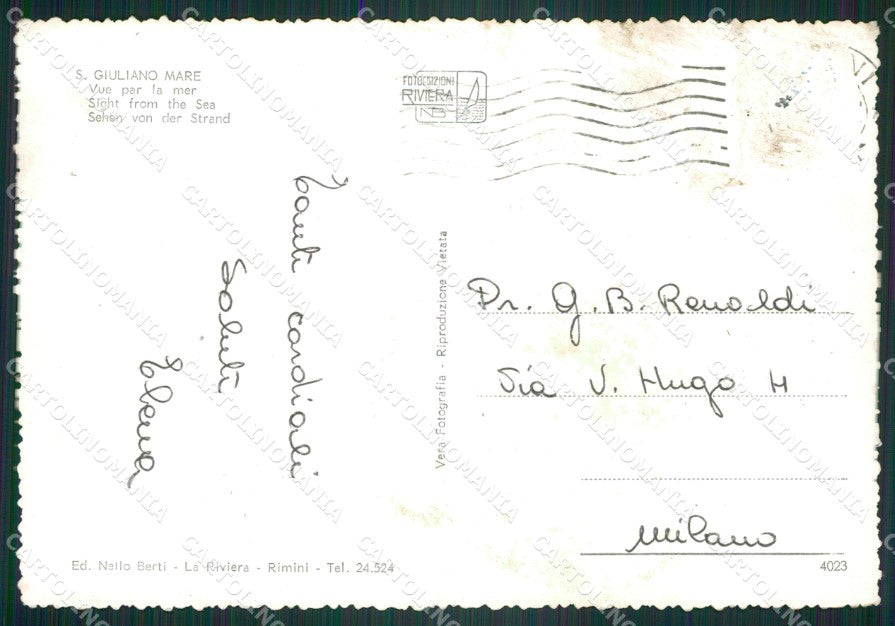 S. GIULIANO MARE
Vue par la mer
Sight from the Sea
Sehen von der Strand
FOTOEDIZIONI
RIVIERA
NB
Tanti cordiali
saluti
Elena
Vera Fotografia - Riproduzione Vietata
Dr. G. B. Renoldi
Via V. Hugo 4
Milano
Ed. Nello Berti - La Riviera - Rimini - Tel. 24.524
4023
CARTOLINOMANIA